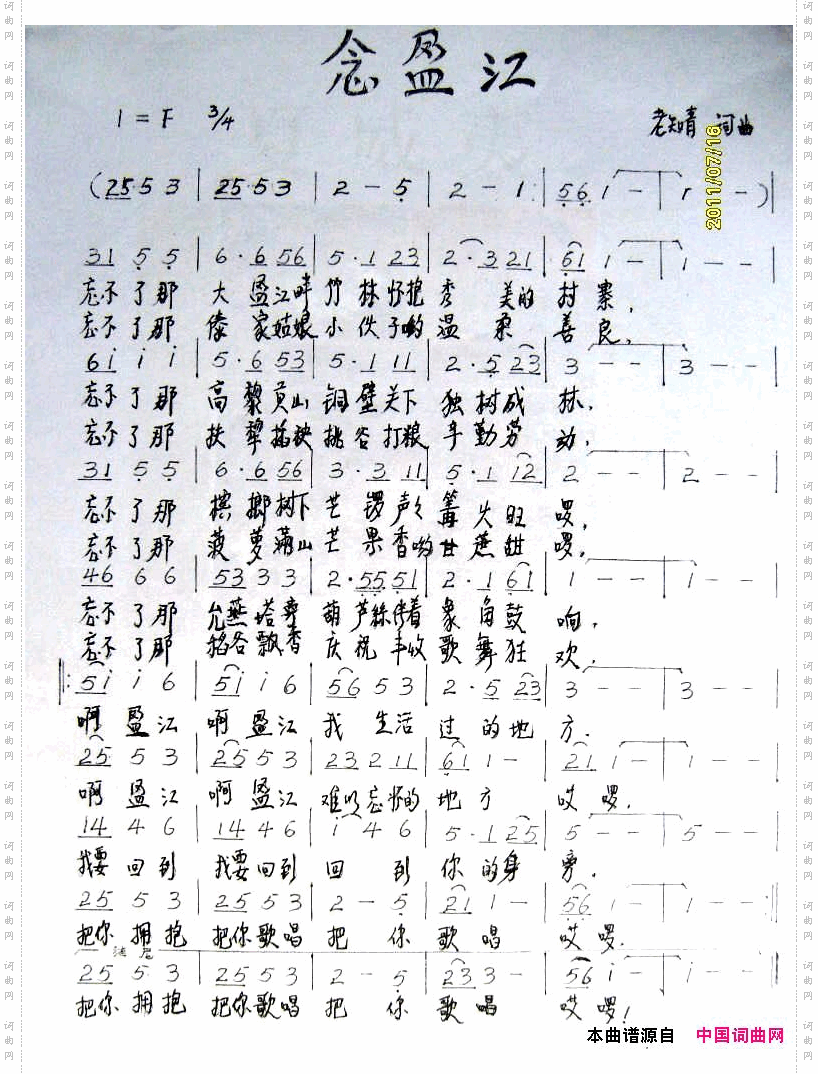 念盈江
1=F 3/4 老知青 词曲
2011/07/16
(25·5 3 | 25·5 3 | 2 - 5 | 2 - 1 | 56 1 - | 1 - - )|
31 5 5 | 6·6 56 | 5·1 23 | 2·3 21 | 61 1 - | 1 - - |
忘不了那 大盈江畔竹林怀抱秀美的村寨,
忘不了那 傣家姑娘小伙子哟温柔善良,
61 i i | 5·6 53 | 5·1 11 | 2·5 23 | 3 - - | 3 - - |
忘不了那 高黎贡山铜壁关下独树成林,
忘不了那 扶犁插秧挑谷打粮辛勤劳动,
31 5 5 | 6·6 56 | 3·3 11 | 5·1 12 | 2 - - | 2 - - |
忘不了那 槟榔树下芒锣声声篝火旺啰,
忘不了那 菠萝满山芒果香哟甘蔗甜啰,
46 6 6 | 53 3 3 | 2·55 51 | 2·1 61 | 1 - - | 1 - - |
忘不了那 允燕塔旁葫芦丝伴着象角鼓响,
忘不了那 稻谷飘香庆祝丰收歌舞狂欢,
|: 51 i 6 | 51 i 6 | 56 5 3 | 2·5 23 | 3 - - | 3 - - |
啊盈江 啊盈江 我生活过的地方.
25 5 3 | 25 5 3 | 23 2 11 | 61 1 - | 21 1 - | 1 - - |
啊盈江 啊盈江 难以忘怀的地方 哎啰,
14 4 6 | 14 4 6 | 1 4 6 | 5·1 25 | 5 - - | 5 - - |
我要回到 我要回到 回到你的身旁.
25 5 3 | 25 5 3 | 2 - 5 | 21 1 - | 56 1 - | 1 - - :|
把你拥抱 把你歌唱 把你歌唱 哎啰.
25 5 3 | 25 5 3 | 2 - 5 | 23 3 - | 56 i - | i - - ||
把你拥抱 把你歌唱 把你歌唱 哎啰!
本曲谱源自 中国词曲网